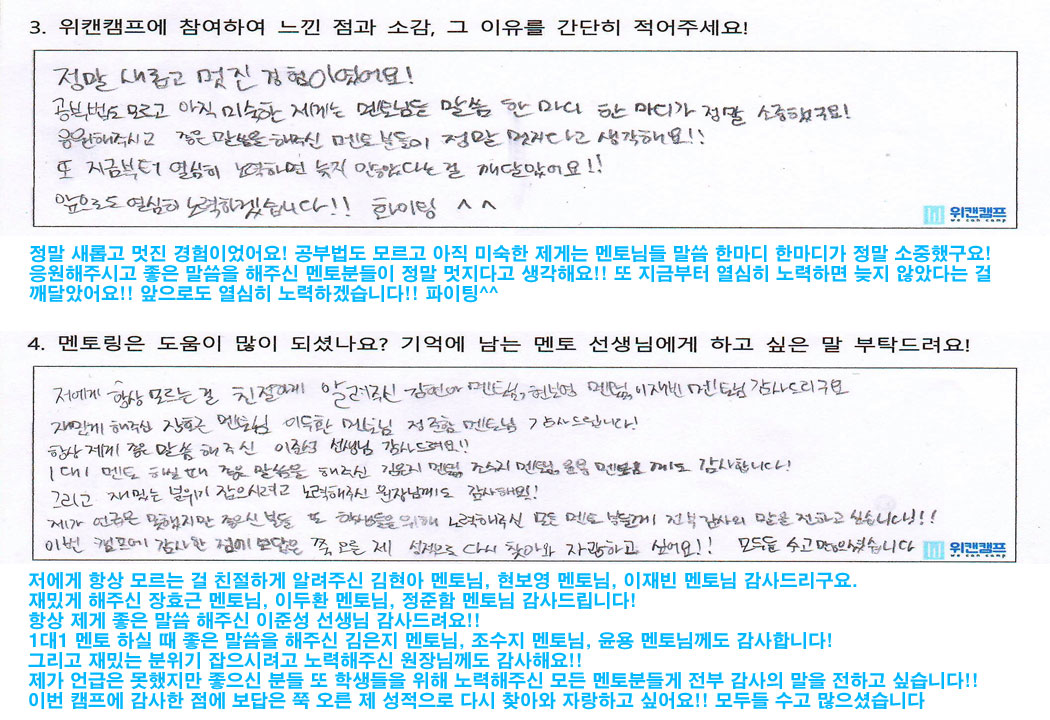 3. 위캔캠프에 참여하여 느낀 점과 소감, 그 이유를 간단히 적어주세요!
정말 새롭고 멋진 경험이였어요!
공부법도 모르고 아직 미숙한 제게는 멘토님들 말씀 한 마디 한 마디가 정말 소중했구요!
응원해주시고 좋은 말씀을 해주신 멘토분들이 정말 멋지다고 생각해요!!
또 지금부터 열심히 노력하면 늦지 않았다는 걸 깨달았어요!!
앞으로도 열심히 노력하겠습니다!! 화이팅 ^^
위캔캠프
we can camp
정말 새롭고 멋진 경험이었어요! 공부법도 모르고 아직 미숙한 제게는 멘토님들 말씀 한마디 한마디가 정말 소중했구요!
응원해주시고 좋은 말씀을 해주신 멘토분들이 정말 멋지다고 생각해요!! 또 지금부터 열심히 노력하면 늦지 않았다는 걸
깨달았어요!! 앞으로도 열심히 노력하겠습니다!! 파이팅^^
4. 멘토링은 도움이 많이 되셨나요? 기억에 남는 멘토 선생님에게 하고 싶은 말 부탁드려요!
저에게 항상 모르는 걸 친절하게 알려주신 김현아 멘토님, 현보영 멘토님, 이재빈 멘토님 감사드리구요
재밌게 해주신 장효근 멘토님 이두환 멘토님 정준함 멘토님 감사드립니다!
항상 제게 좋은 말씀 해주신 이준성 선생님 감사드려요!!
1대1 멘토 하실 때 좋은 말씀을 해주신 김은지 멘토님, 조수지 멘토님, 윤용 멘토님께도 감사합니다!
그리고 재밌는 분위기 잡으시려고 노력해주신 원장님께도 감사해요!
제가 언급은 못했지만 좋으신 분들 또 학생들을 위해 노력해주신 모든 멘토 분들께 전부 감사의 말을 전하고 싶습니다!!
이번 캠프에 감사한 점에 보답은 쭉 오른 제 성적으로 다시 찾아와 자랑하고 싶어요!! 모두들 수고 많으셨습니다
위캔캠프
we can camp
저에게 항상 모르는 걸 친절하게 알려주신 김현아 멘토님, 현보영 멘토님, 이재빈 멘토님 감사드리구요.
재밌게 해주신 장효근 멘토님, 이두환 멘토님, 정준함 멘토님 감사드립니다!
항상 제게 좋은 말씀 해주신 이준성 선생님 감사드려요!!
1대1 멘토 하실 때 좋은 말씀을 해주신 김은지 멘토님, 조수지 멘토님, 윤용 멘토님께도 감사합니다!
그리고 재밌는 분위기 잡으시려고 노력해주신 원장님께도 감사해요!!
제가 언급은 못했지만 좋으신 분들 또 학생들을 위해 노력해주신 모든 멘토분들게 전부 감사의 말을 전하고 싶습니다!!
이번 캠프에 감사한 점에 보답은 쭉 오른 제 성적으로 다시 찾아와 자랑하고 싶어요!! 모두들 수고 많으셨습니다